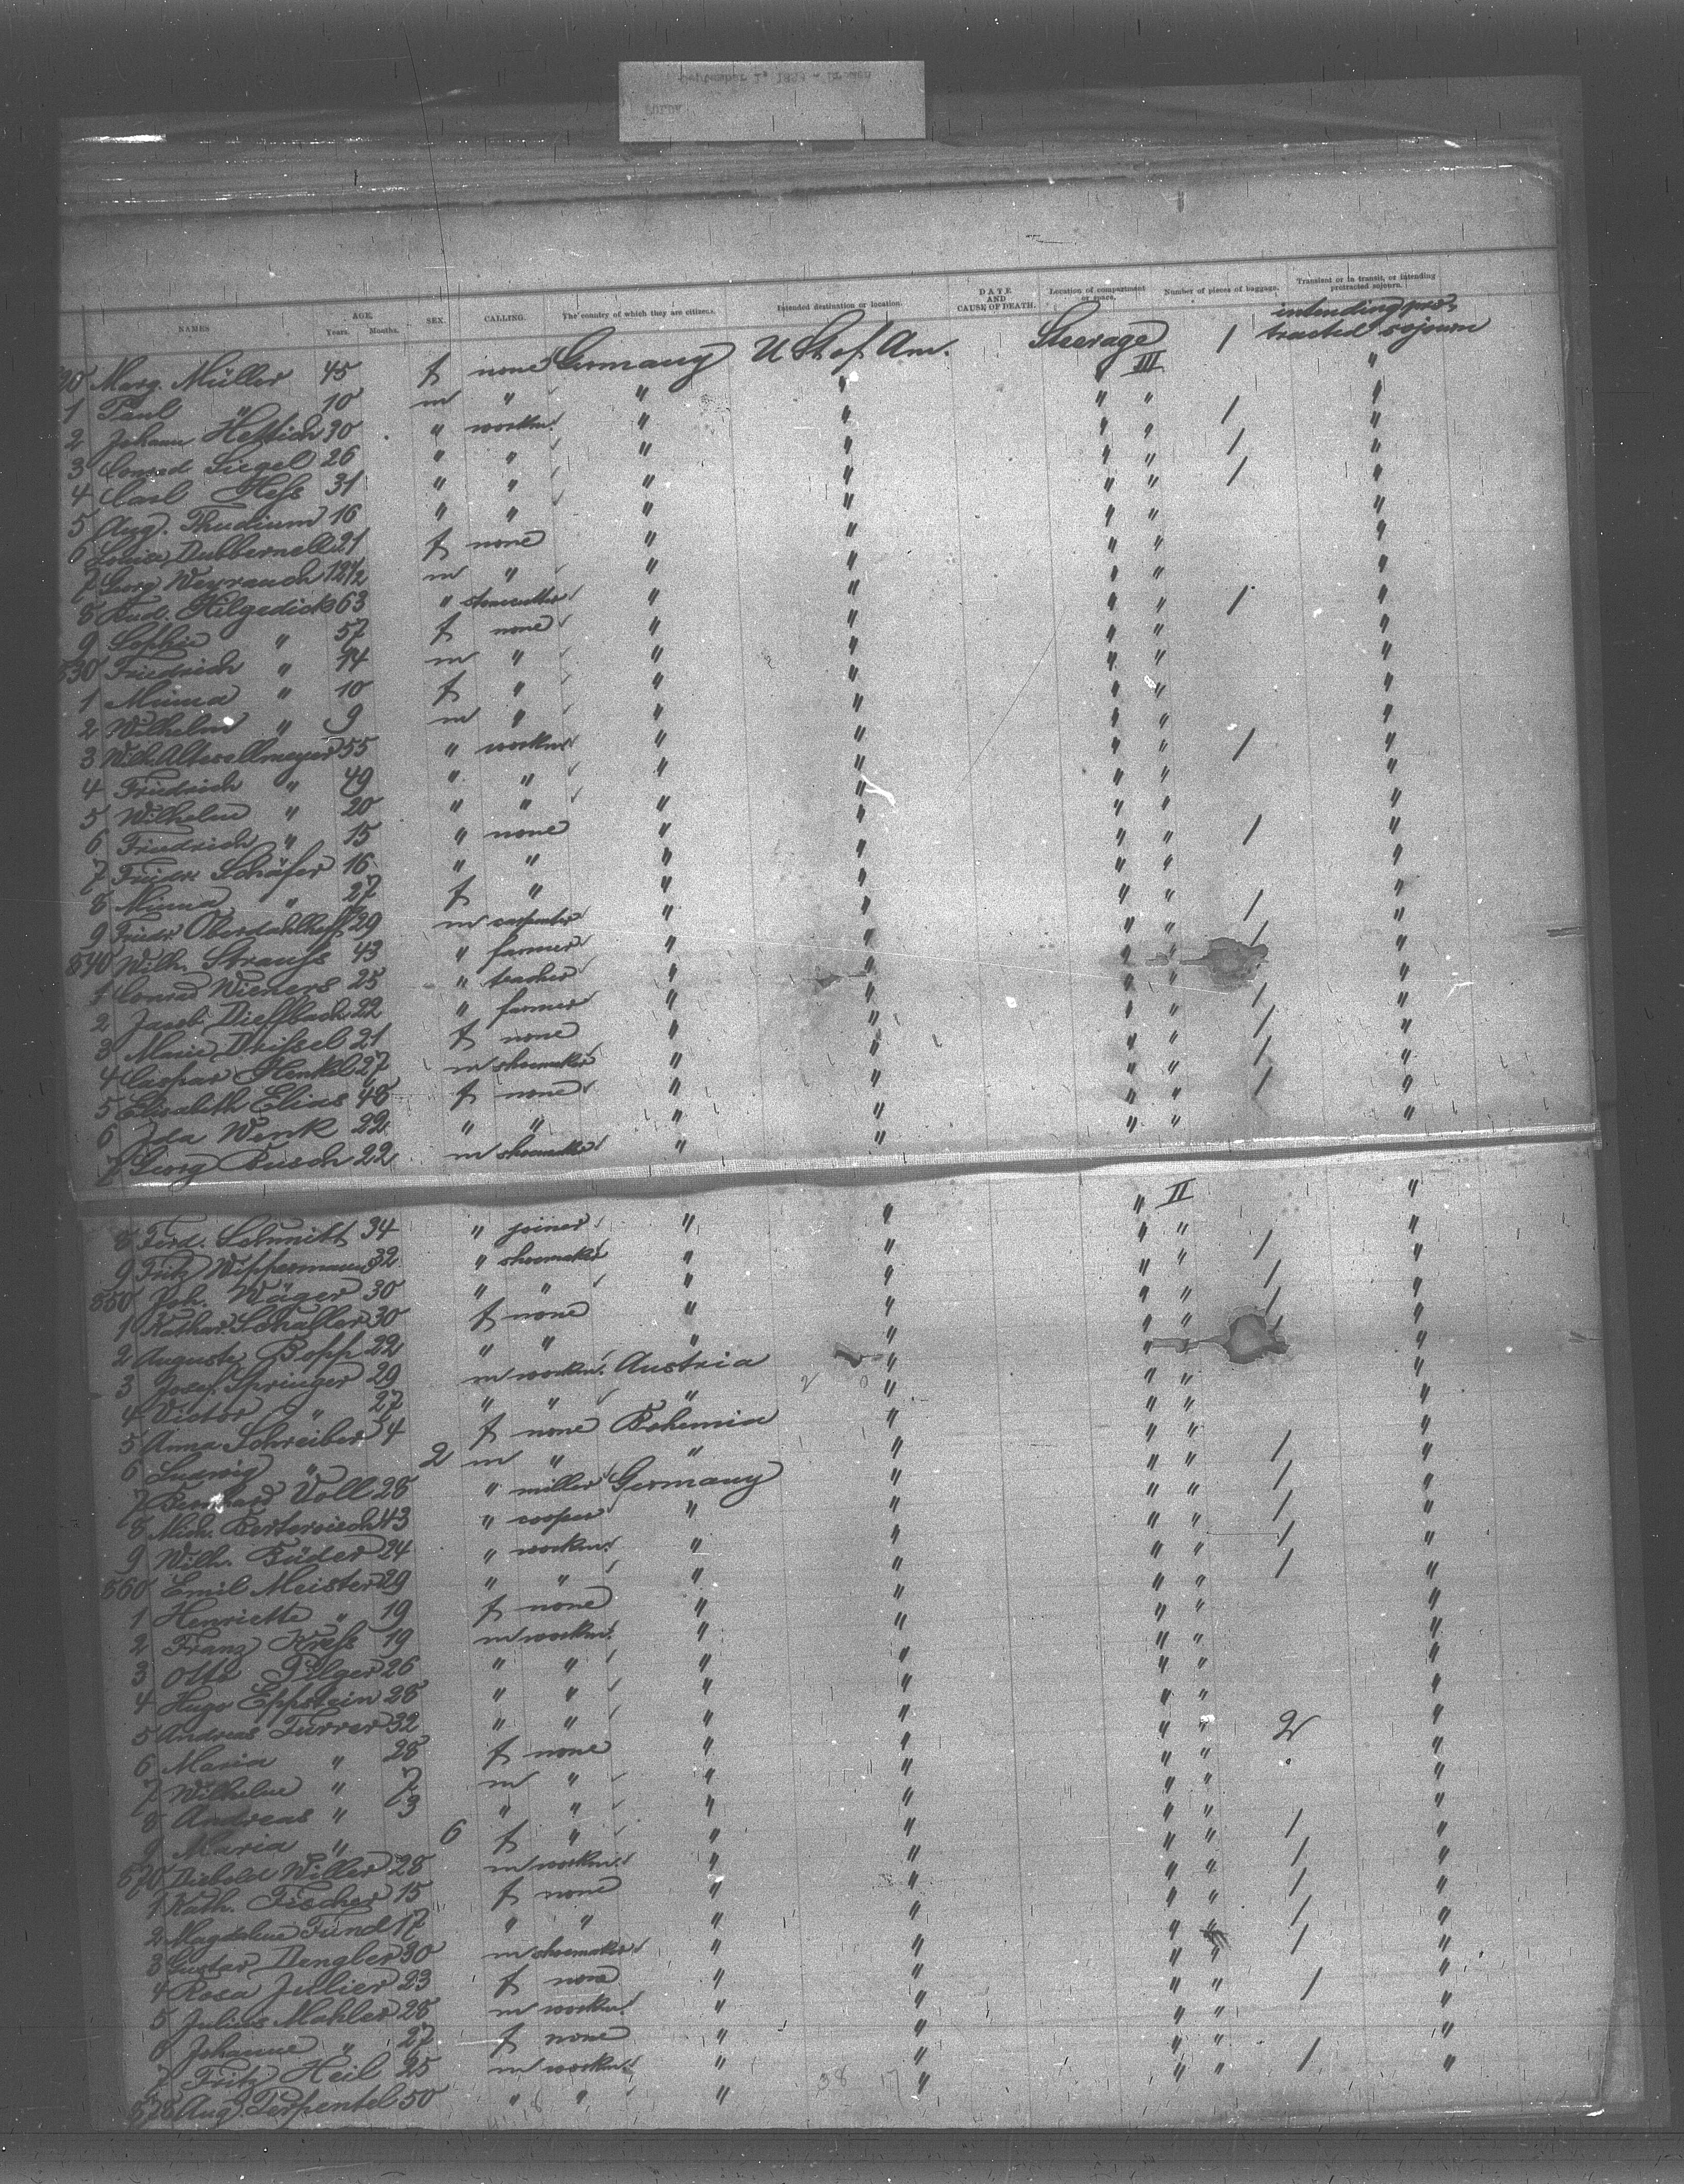 NAMES AGE. Years. Months. SEX. CALLING. The country of which they are citizens. Intended destination or location. DATE AND CAUSE OF DEATH. Location of compartment or space. Number of pieces of baggage. Transient or in transit, or intending protracted sojourn.
20 Marg. Müller 45 f none Germany U St of Am. Steerage III / intending protracted sojourn
1 Paul " 10 m " " " " " "
2 Johann Hettich 30 " workm. " " " " / "
3 Conrad Siegel 26 " " " " " " / "
4 Carl Heß 31 " " " " " " / "
5 Aug. Thudium 16 " " " " " " "
6 Louise Dubbernell 21 f none " " " " "
7 Georg Weyrauch 12 1/2 m " " " " " "
8 Rud. Hilgedick 63 " stonecutter " " " " / "
9 Sophie " 57 f none " " " " "
530 Friedrich " 14 m " " " " " "
1 Minna " 10 f " " " " " "
2 Wilhelm " 9 m " " " " " "
3 Wilh. Altesellmeyer 55 " workm. " " " " / "
4 Friedrich " 49 " " " " " " "
5 Wilhelm " 20 " " " " " " "
6 Friedrich " 15 " none " " " " / "
7 Friedr. Schäfer 16 " " " " " " "
8 Minna " 27 f " " " " " "
9 Friedr. 29 m carpenter " " " " / "
540 Wilh. Strauß 43 " farmer " " " " / "
1 Conrad Wieners 25 " teacher " " " " "
2 Jacob Dieffbach 22 " farmer " " " " / "
3 Marie Drissel 21 f none " " " " / "
4 Caspar Henkel 27 m shoemaker " " " " / "
5 Elisabeth Elias 48 f none " " " " / "
6 Ida Wenk 22 " " " " " " "
7 Georg Busch 22 m shoemaker " " " II "
8 Ferd. Schmitt 34 " joiner " " " " "
9 Fritz Wippermann 32 " shoemaker " " " " / "
550 Joh. Wäger 30 " " " " " " / "
1 Kathar. Schaller 30 f none " " " " / "
2 Auguste Bopp 22 " " " " " " / "
3 Josef Springer 29 m workm. Austria " " " "
4 Victor " 27 " " " " " " "
5 Anna Schreiber 4 f none Bohemia " " " "
6 Ludwig " 2 m " " " " " / "
7 Bernhard Voll 28 " miller Germany " " " / "
8 43 " cooper " " " " / "
9 Wilh. Büder 24 " workm. " " " " / "
560 Emil Meister 29 " " " " " " / "
1 Henriette " 19 f none " " " " "
2 Franz Kreß 19 m workm. " " " " "
3 Otto Pilger 26 " " " " " " "
4 Hugo Eppstein 28 " " " " " " "
5 Andreas Furrer 32 " " " " " " 2 "
6 Maria " 28 f none " " " " "
7 Wilhelm " 7 m " " " " " "
8 Andreas " 3 " " " " " " / "
9 Maria " 6 f " " " " " / "
570 Diebold Willer 28 m workm. " " " " / "
1 Kath. Fischer 15 f none " " " " / "
2 Magdalena Fünd 17 " " " " " " / "
3 Gustav Dengler 30 m shoemaker " " " " "
4 Rosa Jullier 23 f none " " " " / "
5 Julius Mahler 28 m workm. " " " " "
6 Johanne " 27 f none " " " " "
7 Fritz Heil 25 m workm. " " " " / "
578 Aug. Terpentel 50 " " " "
38 17